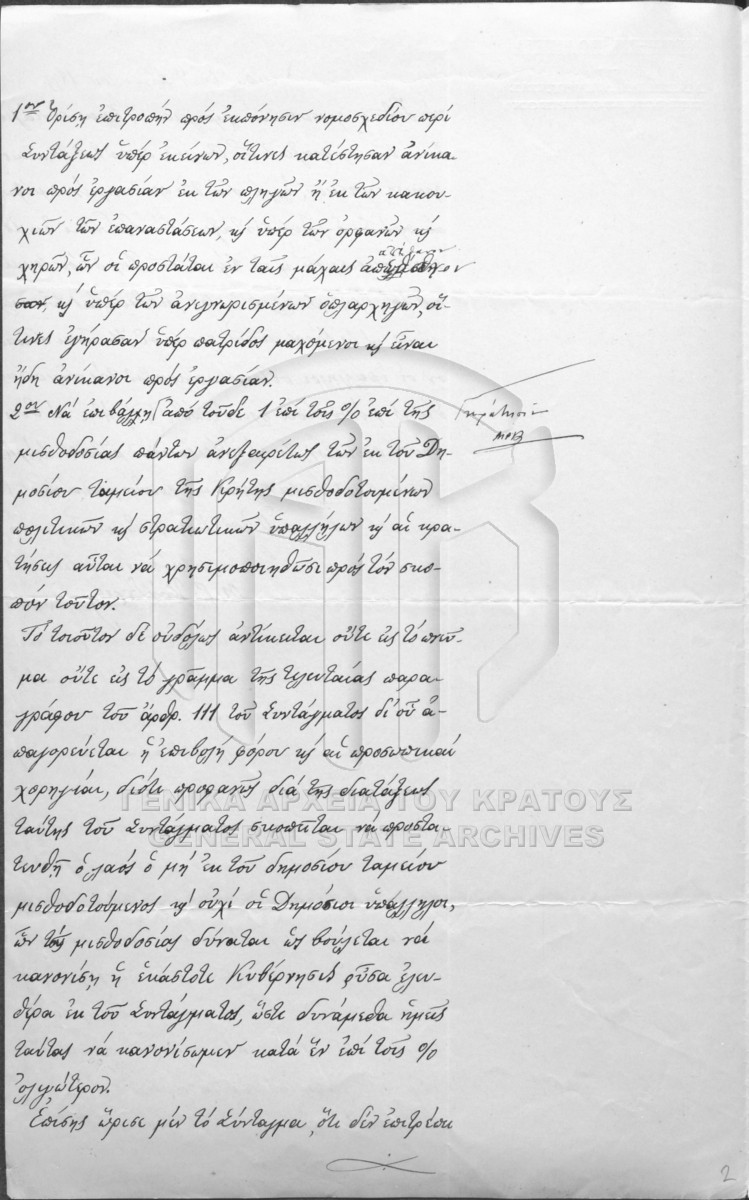 1ον Ὁρίσῃ ἐπιτροπήν πρός ἐκπόνησιν νομοσχεδίου περί
Συντάξεως ὑπέρ ἐκείνων, οἵτινες κατέστησαν ἀνίκα-
νοι πρός ἐργασίαν ἐκ τῶν πληγῶν ἤ ἐκ τῶν κακου-
χιῶν τῶν ἐπαναστάσεων, κ' ὑπέρ τῶν ὀρφανῶν κ'
χηρῶν, ὧν οἱ προστάται ἐν ταῖς μάχαις ἀπέθανον
κ' ὑπέρ τῶν ἀνεγνωρισμένων ὁπλαρχηγῶν, οἵ-
τινες ἐγήρασαν ὑπέρ πατρίδος μαχόμενοι κ' εἶναι
ἤδη ἀνίκανοι πρός ἐργασίαν.
2ον Νά ἐπιβάλῃ ἀπό τοῦδε 1 ἐπί τοῖς % ἐπί τῆς
μισθοδοσίας πάντων ἀνεξαιρέτως τῶν ἐκ τοῦ Δη-
μοσίου ταμείου τῆς Κρήτης μισθοδοτουμένων
πολιτικῶν κ' στρατιωτικῶν ὑπαλλήλων κ' αἱ κρα-
τήσεις αὗται νά χρησιμοποιηθῶσι πρός τόν σκο-
πόν τοῦτον.
Τό τοιοῦτον δέ οὐδόλως ἀντίκειται οὔτε εἰς τό πνεῦ-
μα οὔτε εἰς τό γράμμα τῆς τελευταίας παρα-
γράφου τοῦ ἄρθρ. 111 τοῦ Συντάγματος δι' οὗ ἀ-
παγορεύεται ἡ ἐπιβολή φόρου κ' αἱ προσωπικαί
χορηγίαι, διότι προφανῶς διά τῆς διατάξεως
ταύτης τοῦ Συντάγματος σκοπεῖται νά προστα-
τευθῇ ὁ λαός ὁ μή ἐκ τοῦ δημοσίου ταμείου
μισθοδοτούμενος κ' οὐχί οἱ Δημόσιοι ὑπάλληλοι,
ὧν τάς μισθοδοσίας δύναται ὡς βούλεται νά
κανονίσῃ ἡ ἑκάστοτε Κυβέρνησις οὖσα ἐλευ-
θέρα ἐκ τοῦ Συντάγματος, ὥστε δυνάμεθα ἡμεῖς
ταύτας νά κανονίσωμεν κατά ἕν ἐπί τοῖς %
ὀλιγώτερον.
Ἐπίσης ὥρισε μέν τό Σύνταγμα, ὅτι δέν ἐπιτρέπε
2
ΓΕΝΙΚΑ ΑΡΧΕΙΑ ΤΟΥ ΚΡΑΤΟΥΣ
GENERAL STATE ARCHIVES